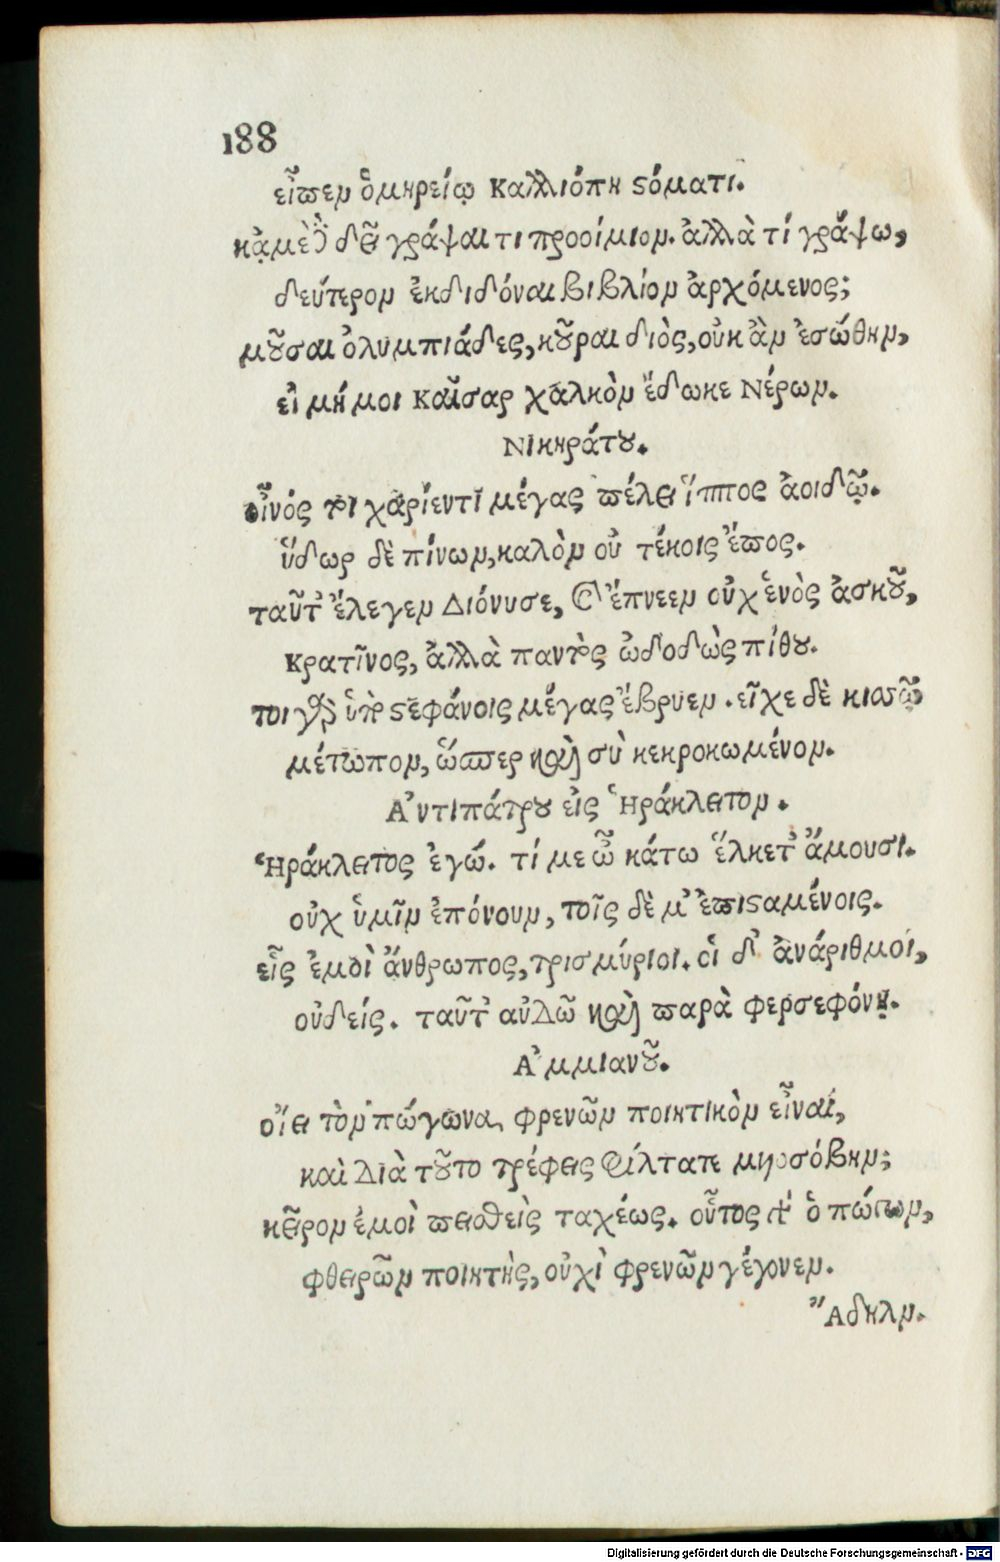 188
εἶπεν ὁμηρείῳ Καλλιόπη στόματι.
κᾀμὲ δεῖ γράψαι τι προοίμιον. ἀλλὰ τί γράψω,
δεύτερον ἐκδιδόναι βιβλίον ἀρχόμενος;
μοῦσαι ὀλυμπιάδες, κοῦραι διὸς, οὐκ ἂν ἐσώθην,
εἰ μή μοι Καῖσαρ χαλκὸν ἔδωκε Νέρων.
Νικηράτου.
οἶνός τοι χαρίεντι μέγας πέλει ἵππος ἀοιδῷ.
ὕδωρ δὲ πίνων, καλὸν οὐ τέκοις ἔπος.
ταῦτ' ἔλεγεν Διόνυσε, καὶ ἔπνεεν οὐχ ἑνὸς ἀσκοῦ,
Κρατῖνος, ἀλλὰ παντὸς ὠδοδὼς πίθου.
τοιγὰρ ὑπὸ στεφάνοις μέγας ἔβρυεν. εἶχε δὲ κισσῷ
μέτωπον, ὥσπερ καὶ σὺ κεκροκωμένον.
Ἀντιπάτρου εἰς Ἡράκλειτον.
Ἡράκλειτος ἐγώ. τί με ὦ κάτω ἕλκετ' ἄμουσι.
οὐχ ὑμῖν ἐπόνουν, τοῖς δὲ μ' ἐπισταμένοις.
εἷς ἐμοὶ ἄνθρωπος, τρισμύριοι. οἱ δ' ἀνάριθμοι,
οὐδείς. ταῦτ' αὐδῶ καὶ παρὰ φερσεφόνῃ.
Ἀμμιανοῦ.
οἴει τὸν πώγωνα, φρενῶν ποιητικὸν εἶναι,
καὶ Διὰ τοῦτο τρέφεις φίλτατε μυοσόβην;
κεῖρον ἐμοὶ πεισθεὶς ταχέως. οὗτος γὰρ ὁ πώγων,
φθειρῶν ποιητὴς, οὐχὶ φρενῶν γέγονεν.
Ἄδηλν.
Digitalisierung gefördert durch die Deutsche Forschungsgemeinschaft - DFG